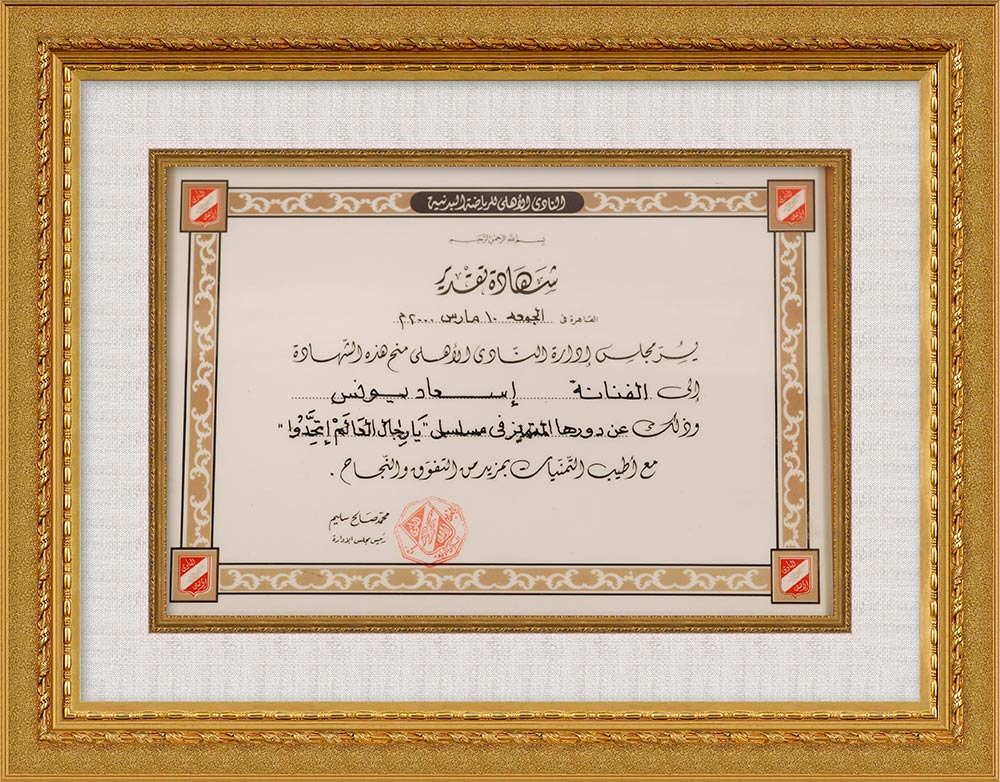 النادى الأهلى للرياضة البدنية
بسم الله الرحمن الرحيم
شهادة تقدير
القاهرة فى الجمعه ١٠ مارس ٢٠٠٠م
يسر مجلس إدارة النادى الأهلى منح هذه الشهادة
إلى الفنانة إسعاد يونس
وذلك عن دورها المتميز فى مسلسل "يَا رِجَال العَالَمْ إتَّحِدُوا"
مع أطيب التمنيات بمزيد من التفوق والنجاح .
محمد صالح سليم
رئيس مجلس الإدارة